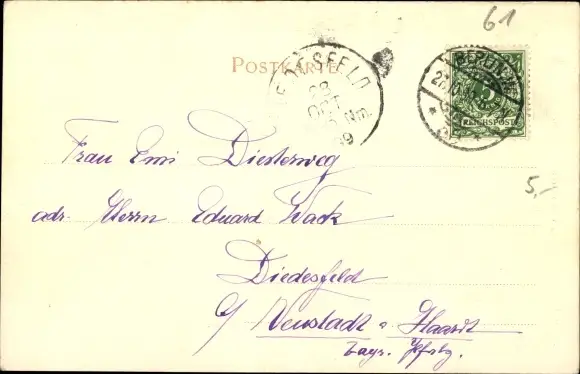 61
POSTKARTE
DESFELD
28
OCT
Nm.
9
BERLIN
REICHSPOST
5,-
Frau Emi Diesterweg
adr. Herrn Eduard Wack
Diedesfeld
b/ Neustadt a. Haardt
bayr. Pfalz.